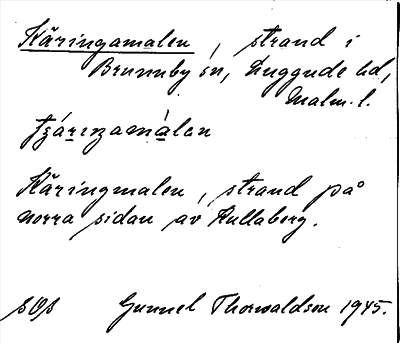 Käringamalen, strand i
Brunnby sn, Luggude hd,
Malm. l.
Käringmalen, strand på
norra sidan av Kullaberg.
Gunnel Thorwaldson 1945.